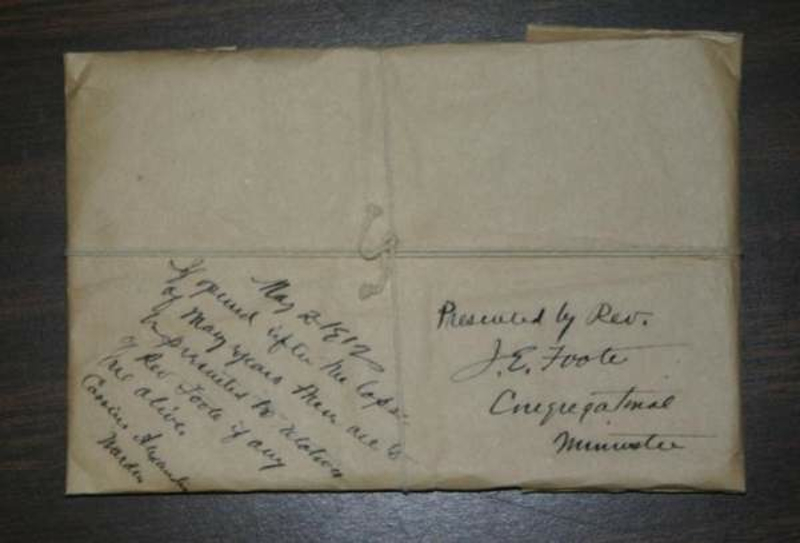 May 2 1912
If opened after the lapse
of many years these are to
be presented to relatives
of Rev Foote if any
are alive.
Cassius Alexander
Warden
Presented by Rev.
J. E. Foote
Congregational
Minister